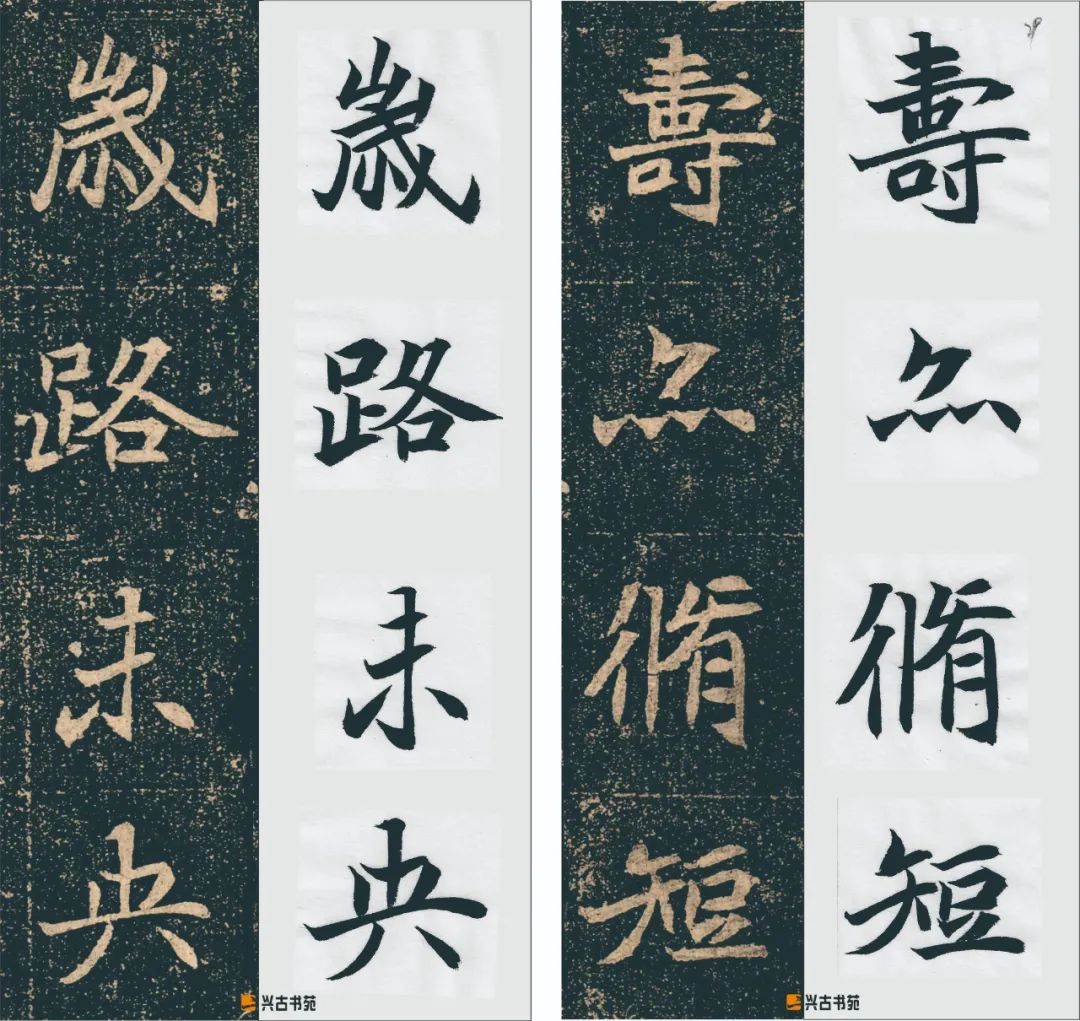 歲路未央
歲路未央
兴古书苑
壽脩短
壽脩短
兴古书苑